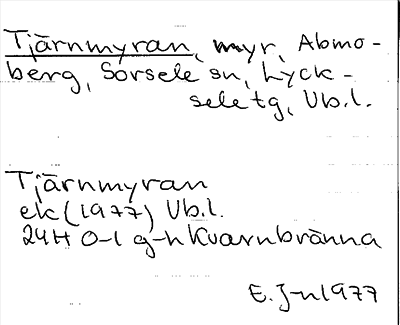 Tjärnmyran, myr, Abmo-
berg, Sorsele sn, Lyck-
sele tg, Vb.l.
Tjärnmyran
ek (1977) Vb.l.
24H 0-1 g-h Kvarnbränna
E. J-n 1977